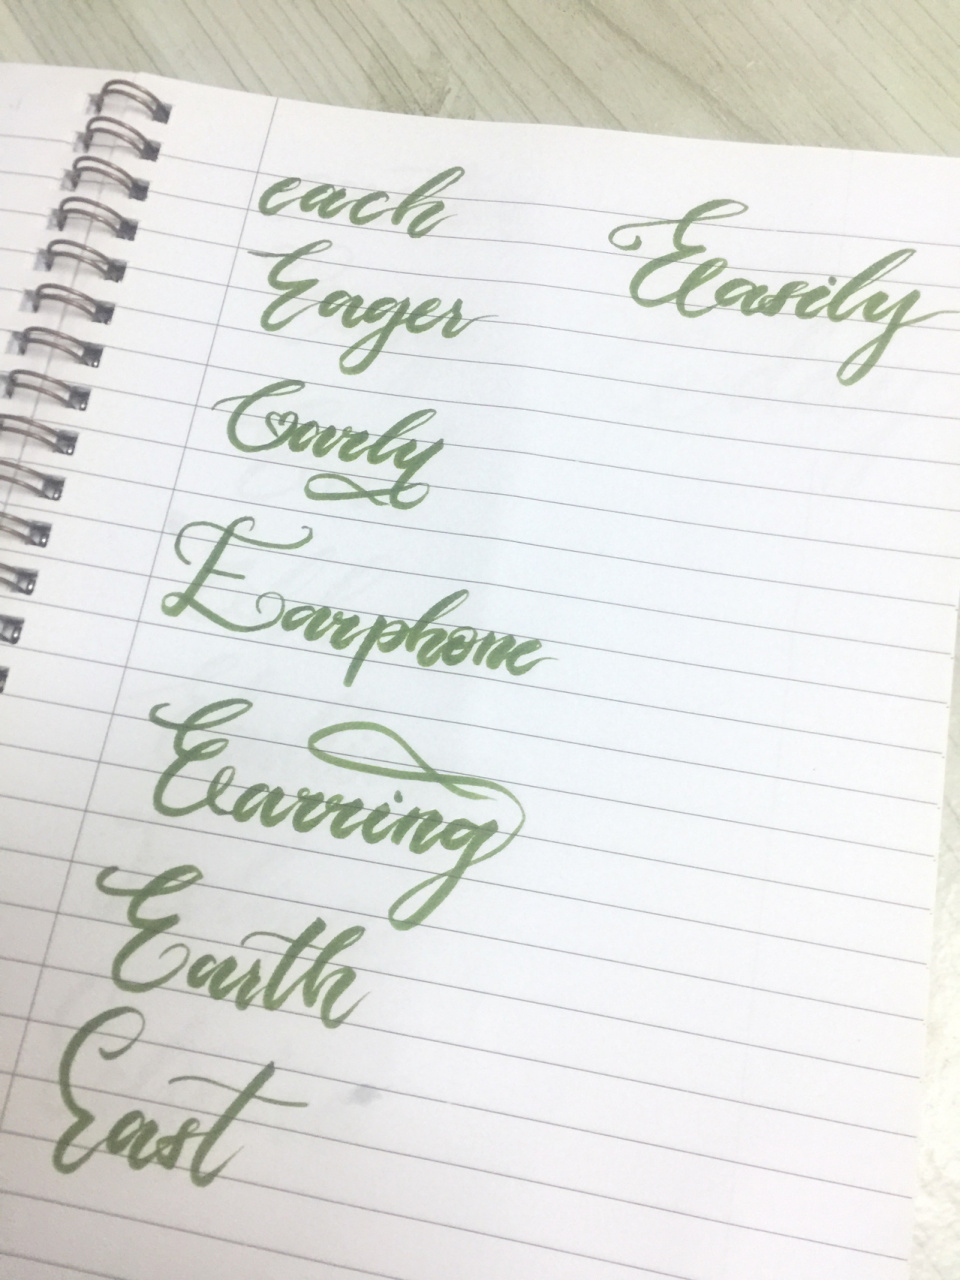 each
Eager
Early
Earphone
Earring
Earth
East
Easily